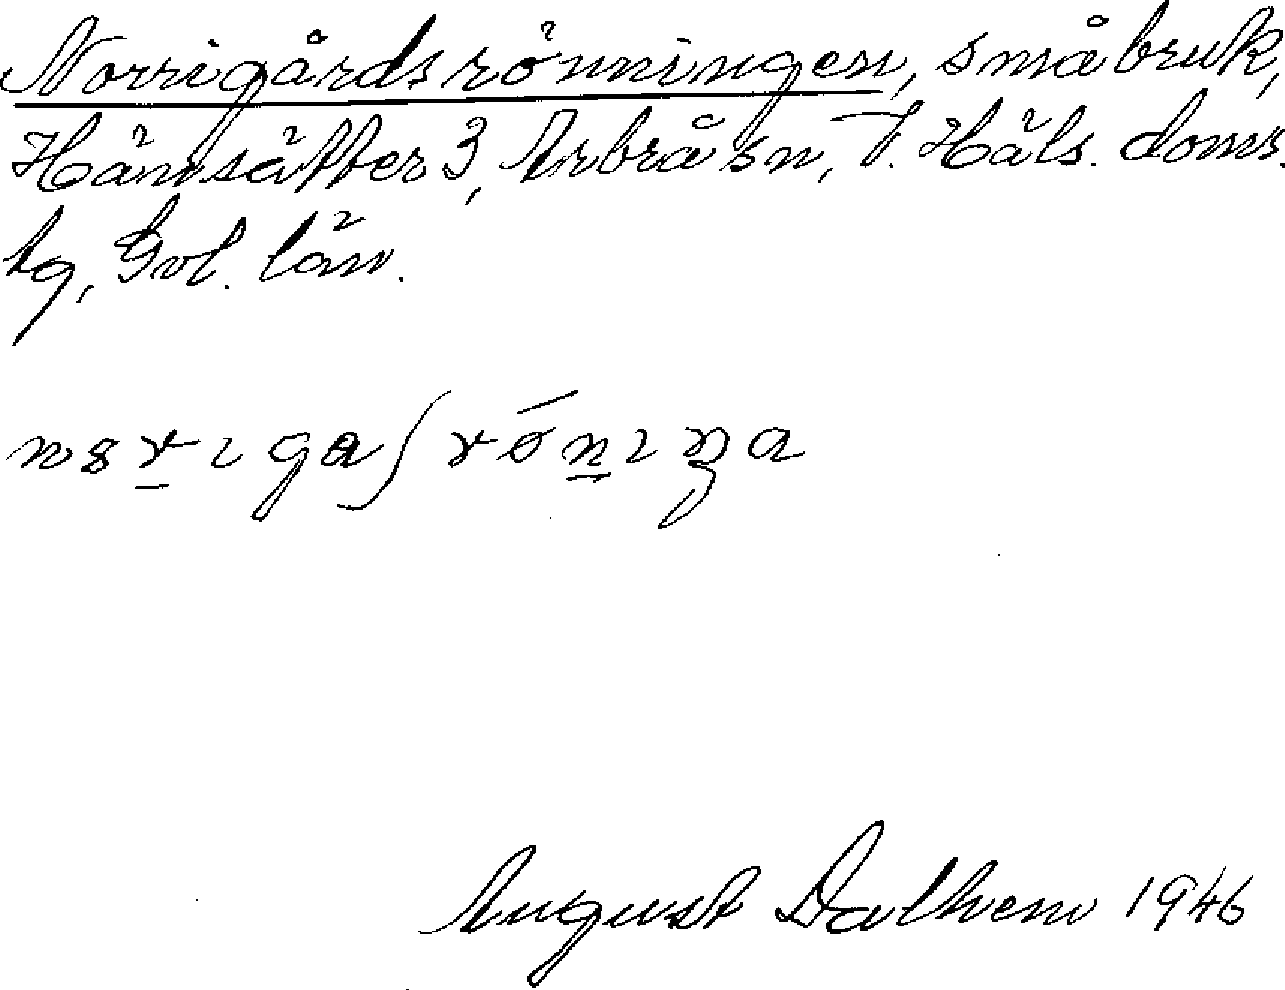 Norrigårdsrönningen, småbruk,
Hämsätter 3, Arbrå sn, V. Häls. doms.
tg, Gvl. län.
August Dalhem 1946